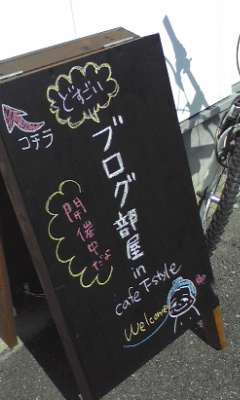 どすごい
コチラ
ブログ部屋 in
cafe F-style
開催中だよ
Welcome